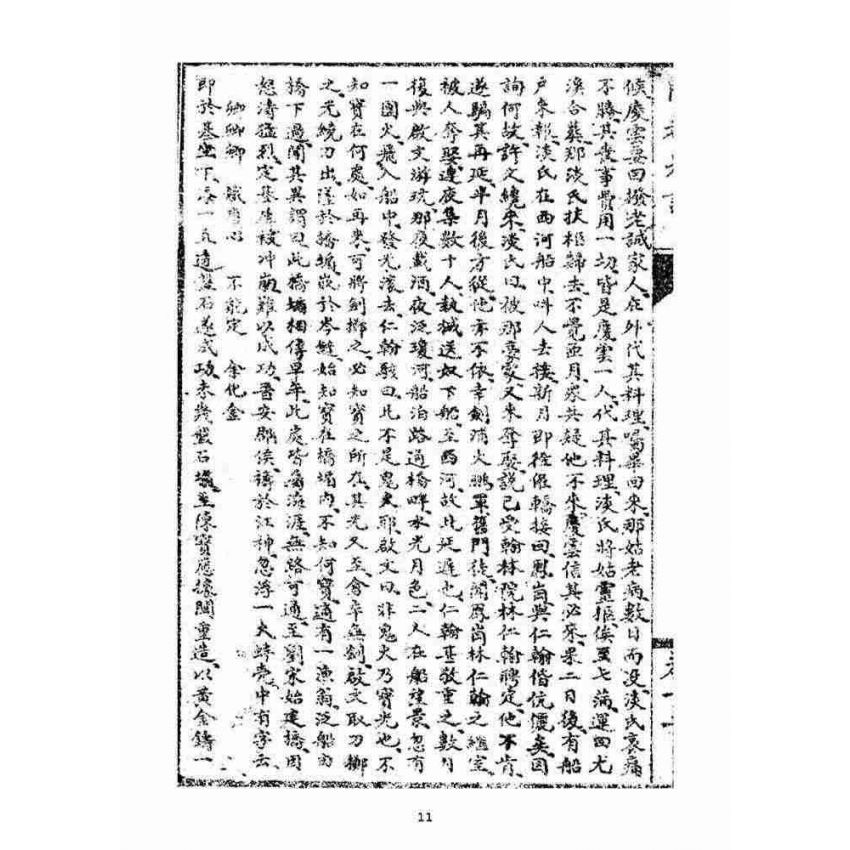 候慶雲妻回撥老誠家人在外代其料理喝畢回來那姑老病数日而没淡氏哀痛
不勝其喪事費用一切皆是慶雲一人代其料理淡氏將姑靈柩俟至七滿運回尤
溪合葬那淡氏扶柩歸去不覺兩月衆共疑他不來慶雲信其必來果二日後有船
户來報淡氏在西河船中呌人去接新月即往催轎接回鳳崗與仁翰偕伉儷矣因
詢何故許文纔來淡氏曰被那豪家又來奪娶說已受翰林院林仁翰聘定他不肯
遂騙其再延半月後方從他亦不依幸劍浦火鵬軍舊門徒聞鳳崗林仁翰之繼室
被人奪娶連夜集数十人執械送奴下船至西河故此延遲也仁翰甚敬重之数月
復與啟文遊玩那夜載酒夜泛瓊河船泊路通橋畔水光月色二人在船望景忽有
一團火飛入船中發光滾去仁翰駭曰此不是鬼火耶啟文曰非鬼火乃寶光也不
知寶在何處如再來可將劍擲之必知寶之所在其光又至倉卒無劍啟文取刀擲
之光繞刀出墜於橋墈嵌於岑縫始知寶在橋墈内不知何寶適有一漁翁泛船由
橋下過聞其異謂曰此橋墈相傳早年此處皆為海涯無路可通至劉宋始建橋因
怒濤猛烈定基生被冲崩難以成功晋安郡侯禱於江神忽浮一大蚌壳中有字云
卿卿卿 賊當心 不能定 金化金
即於基坐下落一丸適盤石遂成功未幾盤石墈至陳寶應據閩重造以黄金鑄一
11